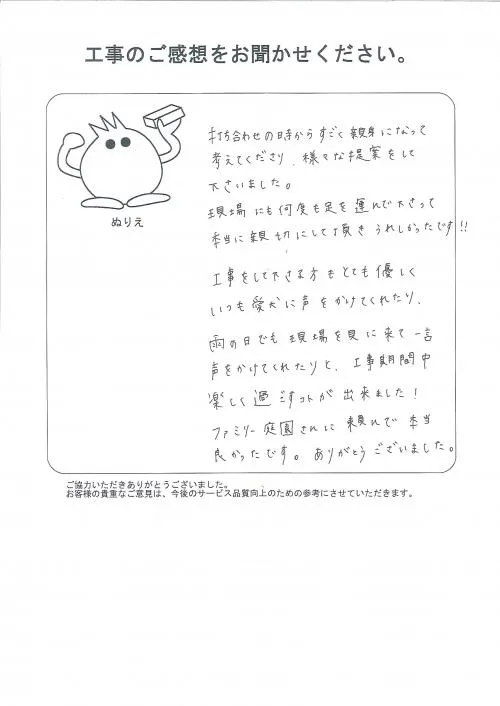 工事のご感想をお聞かせください。
ぬりえ
打ち合わせの時からすごく親身になって
考えてくださり、様々な提案をして
下さいました。
現場にも何度も足を運んで下さって
本当に親切にして頂きうれしかったです!!
工事をして下さる方もとても優しく
いつも愛犬に声をかけてくれたり、
雨の日でも現場を見に来て一言
声をかけてくれたりと、工事期間中
楽しく過ごすコトが出来ました!
ファミリー庭園さんに頼んで本当
良かったです。ありがとうございました。
ご協力いただきありがとうございました。
お客様の貴重なご意見は、今後のサービス品質向上のための参考にさせていただきます。